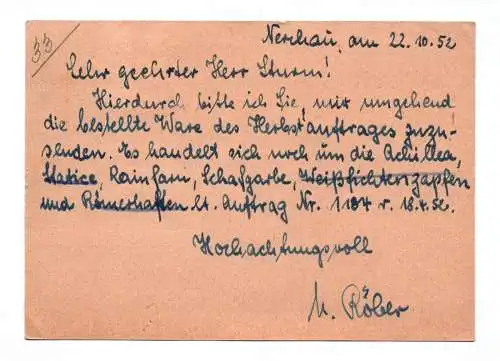 33
Nerchau, am 22.10.52
Sehr geehrter Herr Sturm!
Hierdurch bitte ich Sie, mir umgehend
die bestellte Ware des Herbstauftrages zuzu-
senden. Es handelt sich noch um die Achillea,
Statice, Rainfarn, Schafgarbe, Weißfichtenzapfen
und lt. Auftrag Nr. 1184 v. 18.4.52.
Hochachtungsvoll
Röber